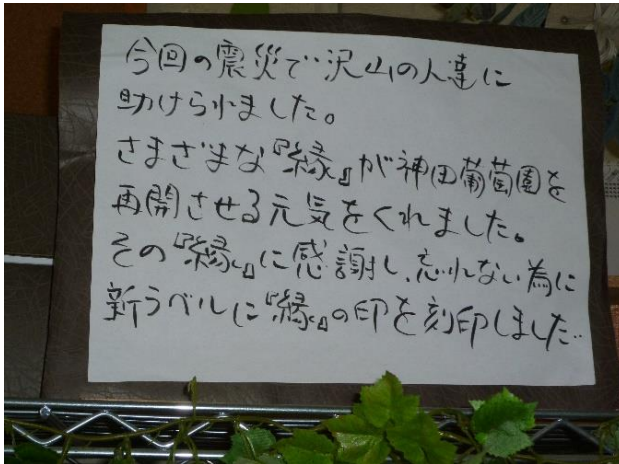 今回の震災で沢山の人達に
助けられました。
さまざまな『縁』が神田葡萄園を
再開させる元気をくれました。
その『縁』に感謝し、忘れない為に
新ラベルに『縁』の印を刻印しました